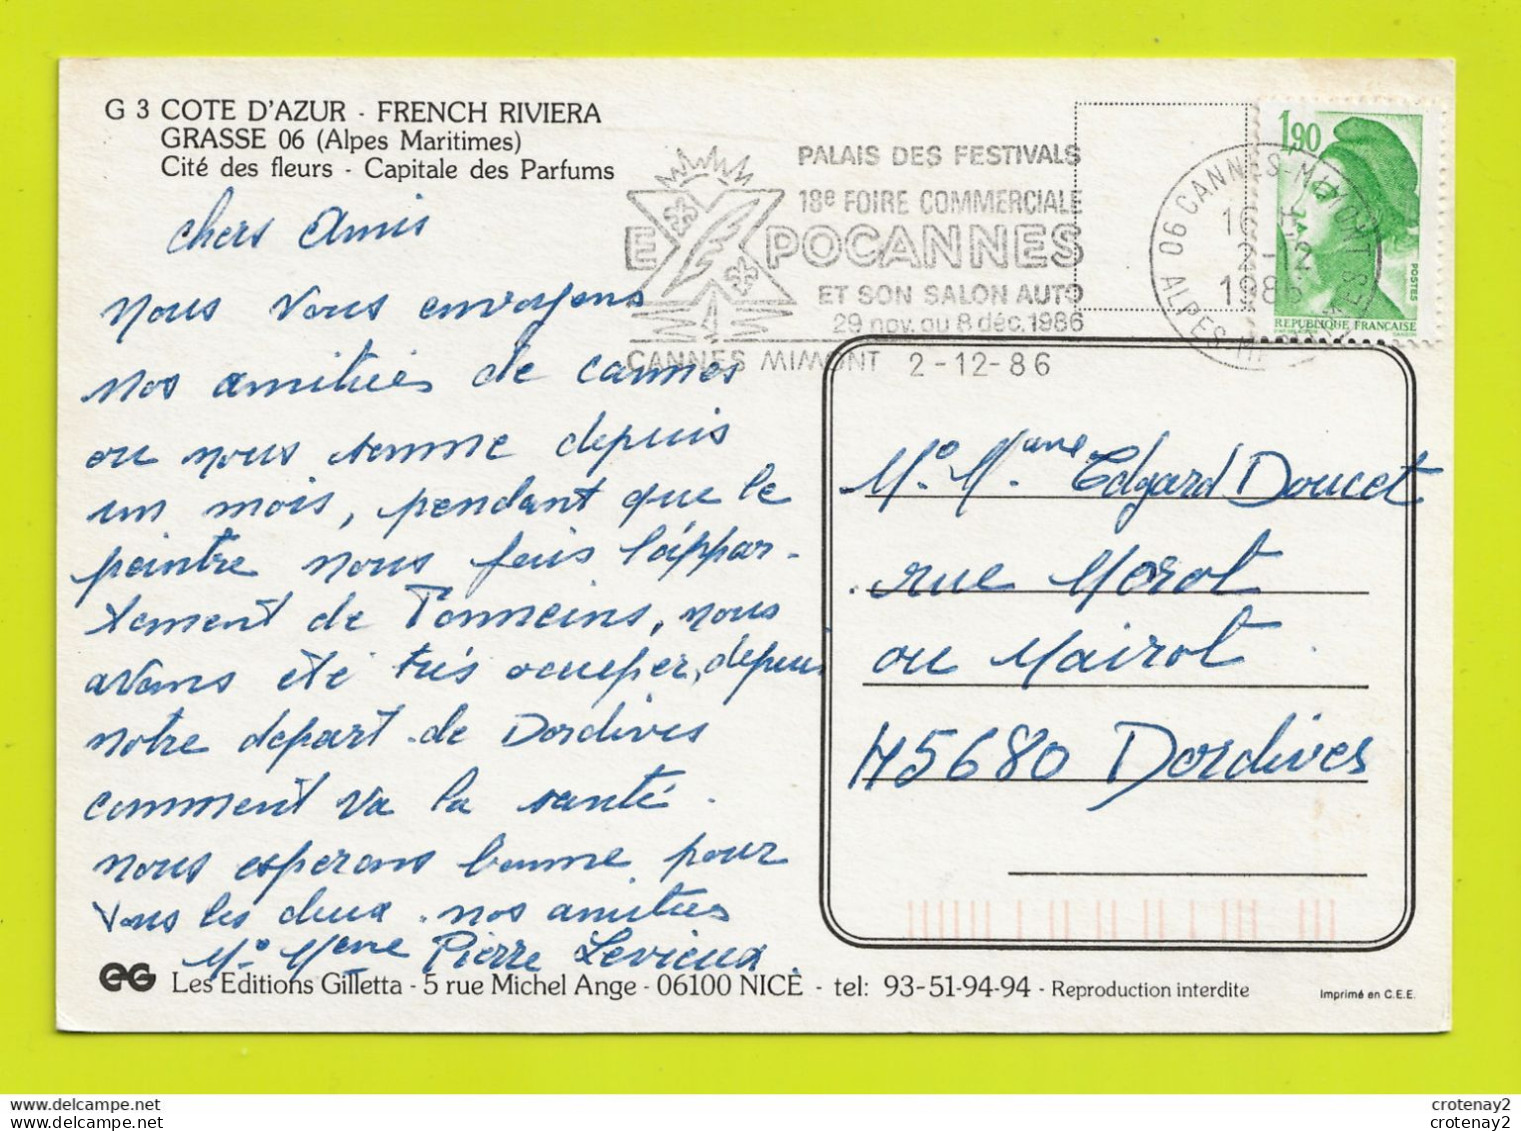 G 3 COTE D'AZUR - FRENCH RIVIERA
GRASSE 06 (Alpes Maritimes)
Cité des fleurs - Capitale des Parfums
chers Amis
nous vous envoyons
nos amitiés de cannes
ou nous somme depuis
un mois, pendant que le
peintre nous fais l'appar-
tement de Tonneins, nous
avons été très occuper, depuis
notre depart de Dordives
comment va la santé.
nous esperons bonne pour
vous les deux. nos amitiés
Mr Mme Pierre Levieux
PALAIS DES FESTIVALS
18e FOIRE COMMERCIALE
EXPOCANNES
ET SON SALON AUTO
29 nov. au 8 déc. 1986
CANNES MIMONT 2-12-86
06 CANNES-MIMONT
ALPES-MARITIMES
16 H
2-12
1986
1,90
POSTES
REPUBLIQUE FRANÇAISE
Mr Mme Edgard Doucet
rue Merot
ou Mairot
45680 Dordives
eG Les Editions Gilletta - 5 rue Michel Ange - 06100 NICE - tel: 93-51-94-94 - Reproduction interdite
Imprimé en C.E.E.
delcampe.net
crotenay2
delcampe.net
crotenay2